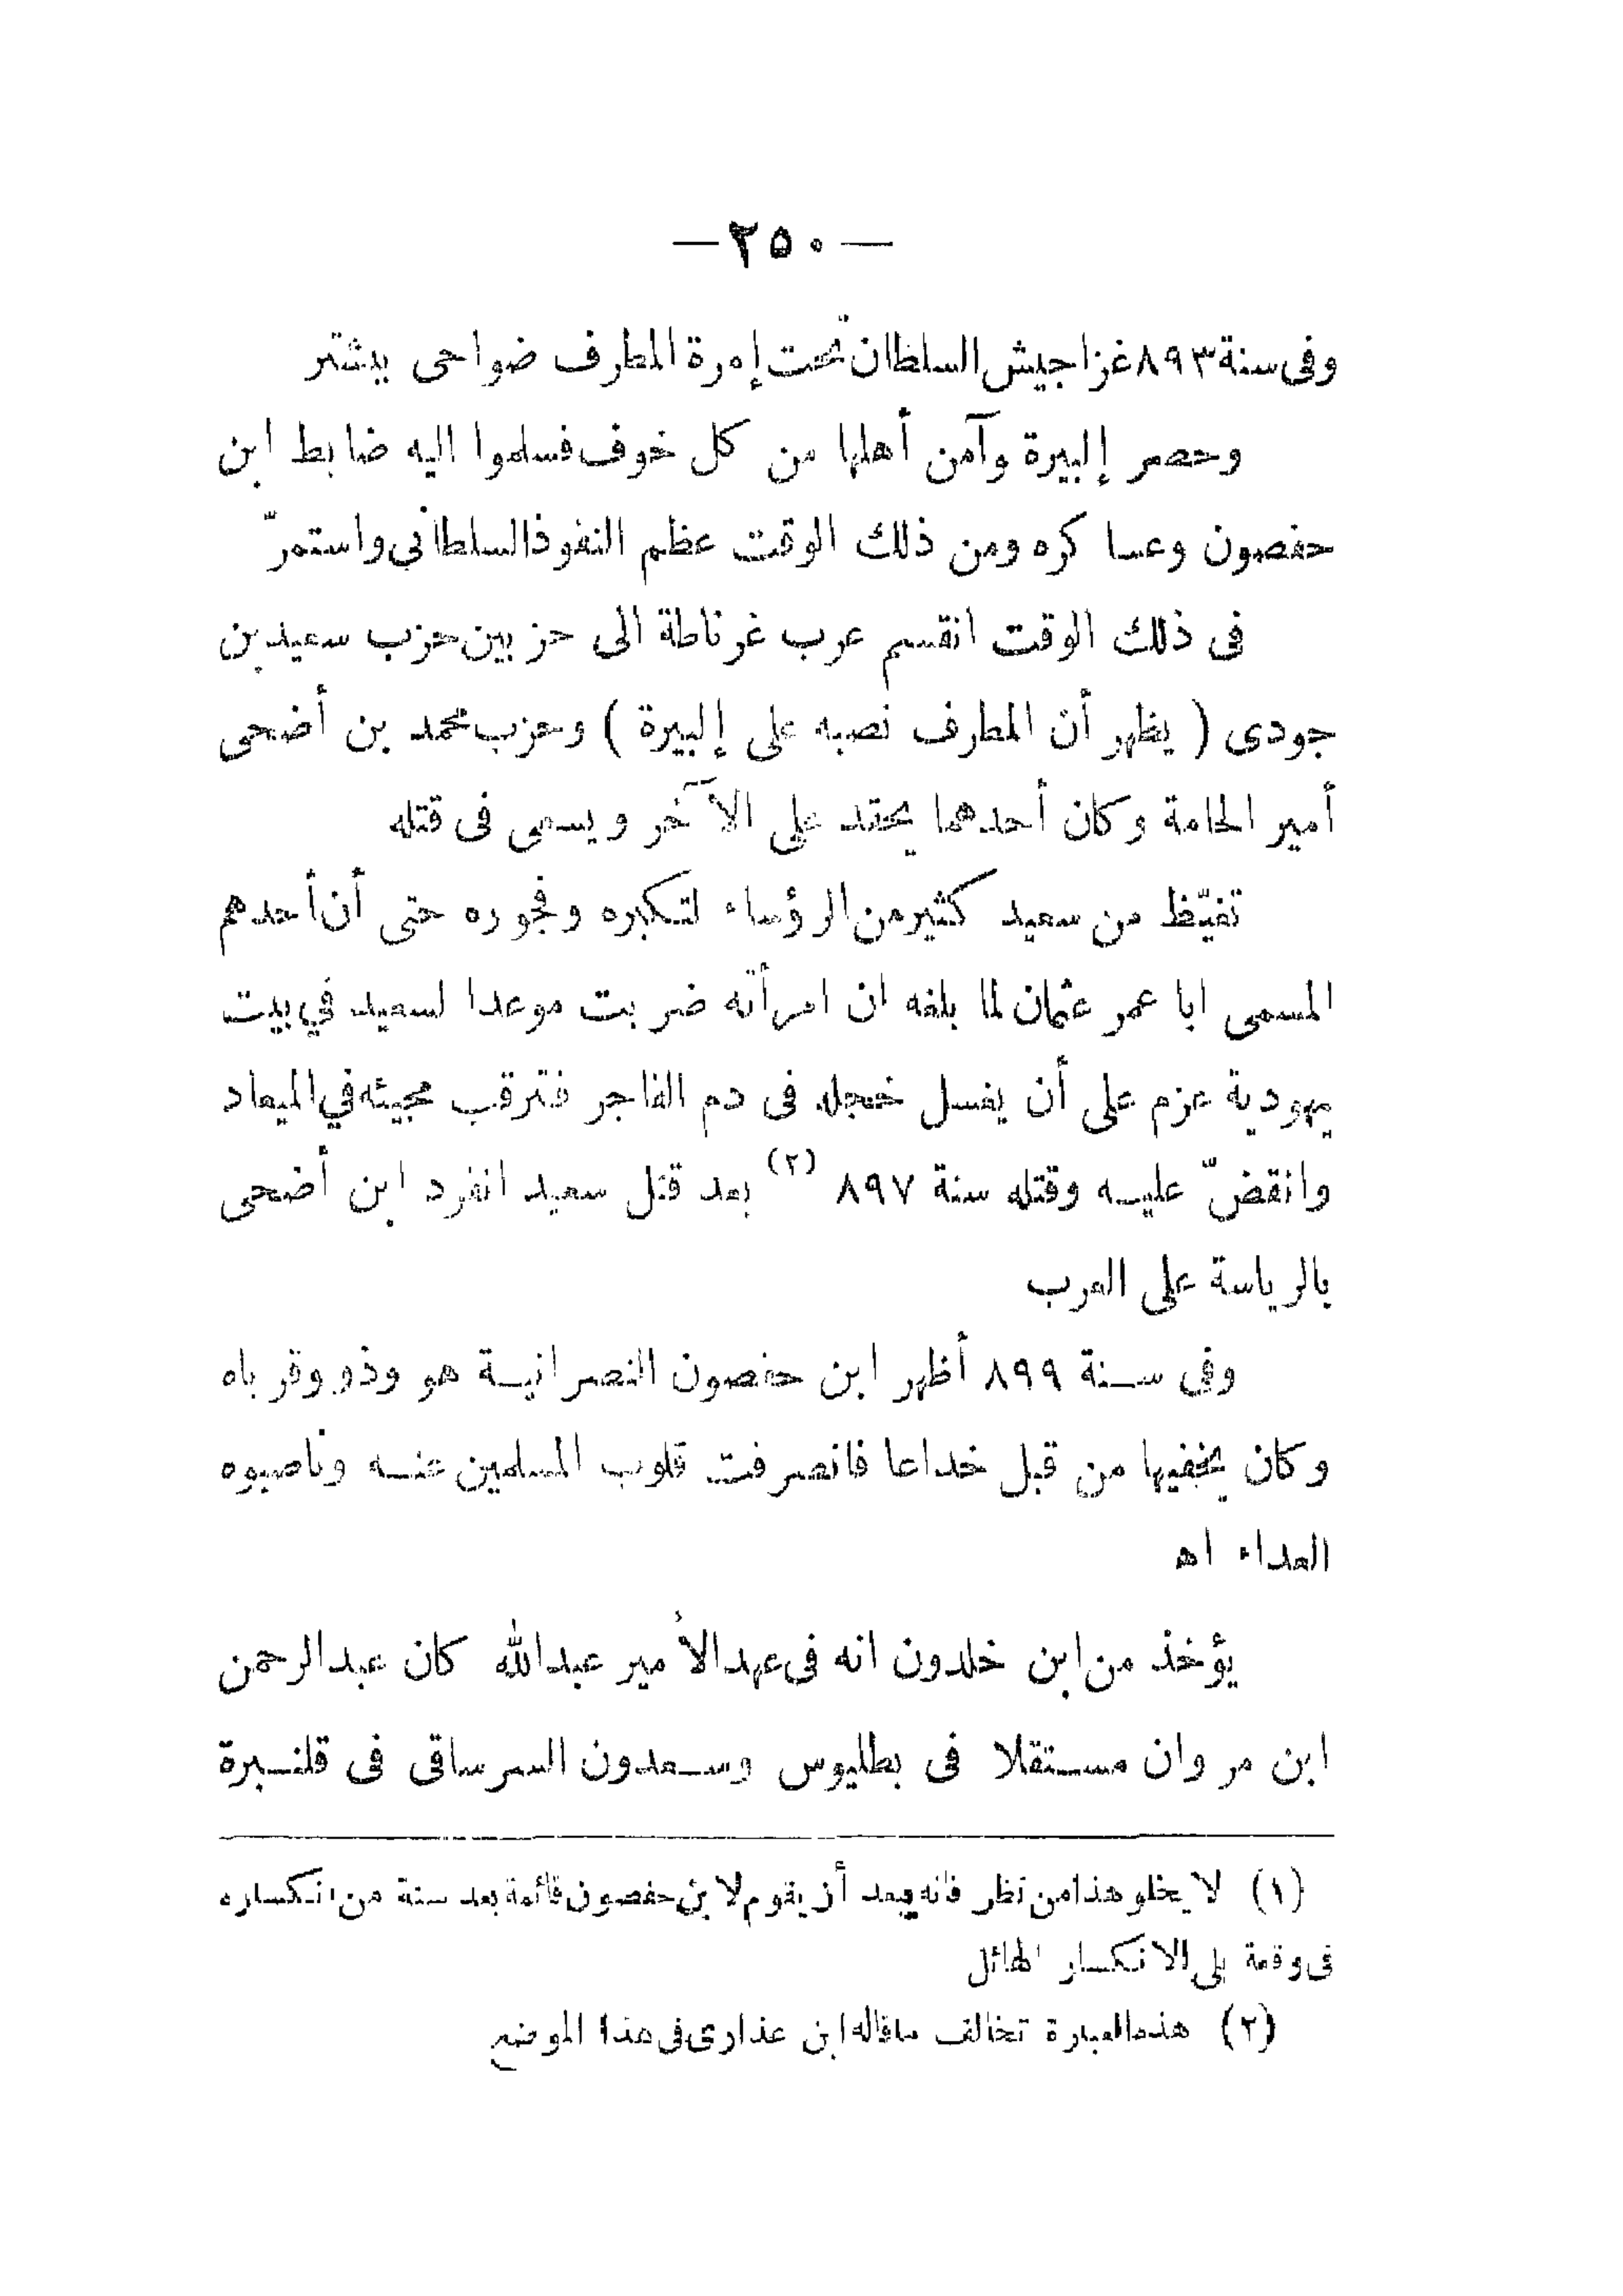 — ٢٥٠ —
وفى سنة ٨٩٣ غزا جيش السلطان تحت إمرة المطرف ضواحى ببشتر
وحصر إلبيرة وآمن أهلها من كل خوف فسلموا اليه ضابط ابن
حفصون وعساكره ومن ذلك الوقت عظم النفوذ السلطاني واستمرّ
فى ذلك الوقت انقسم عرب غرناطة الى حزبين حزب سعيد بن
جودى ( يظهر أن المطرف نصبه على إلبيرة ) وحزب محمد بن أضحى
أمير الحامة وكان أحدهما يحقد على الآخر ويسعى فى قتله
تغيّظ من سعيد كثير من الرؤساء لتكبره وفجوره حتى أن أحدهم
المسمى ابا عمر عثمان لما بلغه ان امرأته ضربت موعدا لسعيد في بيت
يهودية عزم على أن يغسل خجله فى دم الفاجر فترقب مجيئه في الميعاد
وانقضّ عليه وقتله سنة ٨٩٧ (٢) بعد قتل سعيد انفرد ابن أضحى
بالرياسة على العرب
وفى سنة ٨٩٩ أظهر ابن حفصون النصرانية هو وذوو قرباه
وكان يخفيها من قبل خداعا فانصرفت قلوب المسلمين عنه وناصبوه
العداء اه
يؤخذ من ابن خلدون انه فى عهد الأمير عبد الله كان عبد الرحمن
ابن مروان مستقلا فى بطليوس وسعدون السرساقى فى قلنبرة
(١) لا يخلو هذا من نظر فانه يبعد أن يقوم لابن حفصون قائمة بعد سنة من انكساره
فى وقعة بلى الانكسار الهائل
(٢) هذه العبارة تخالف ما قاله ابن عذارى فى هذا الموضع